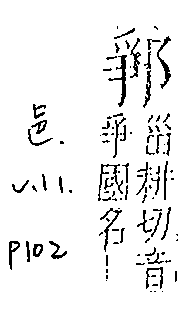 甾耕切音
爭國名
邑.
v.11.
p102